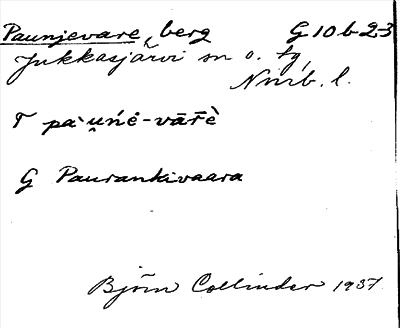 Paunjevare, berg G 10 b 2-3
Jukkasjärvi sn o. tg,
Nmb. l.
T pa`u̯ńė-vār̄è
G Paurankivaara
Björn Collinder 1937